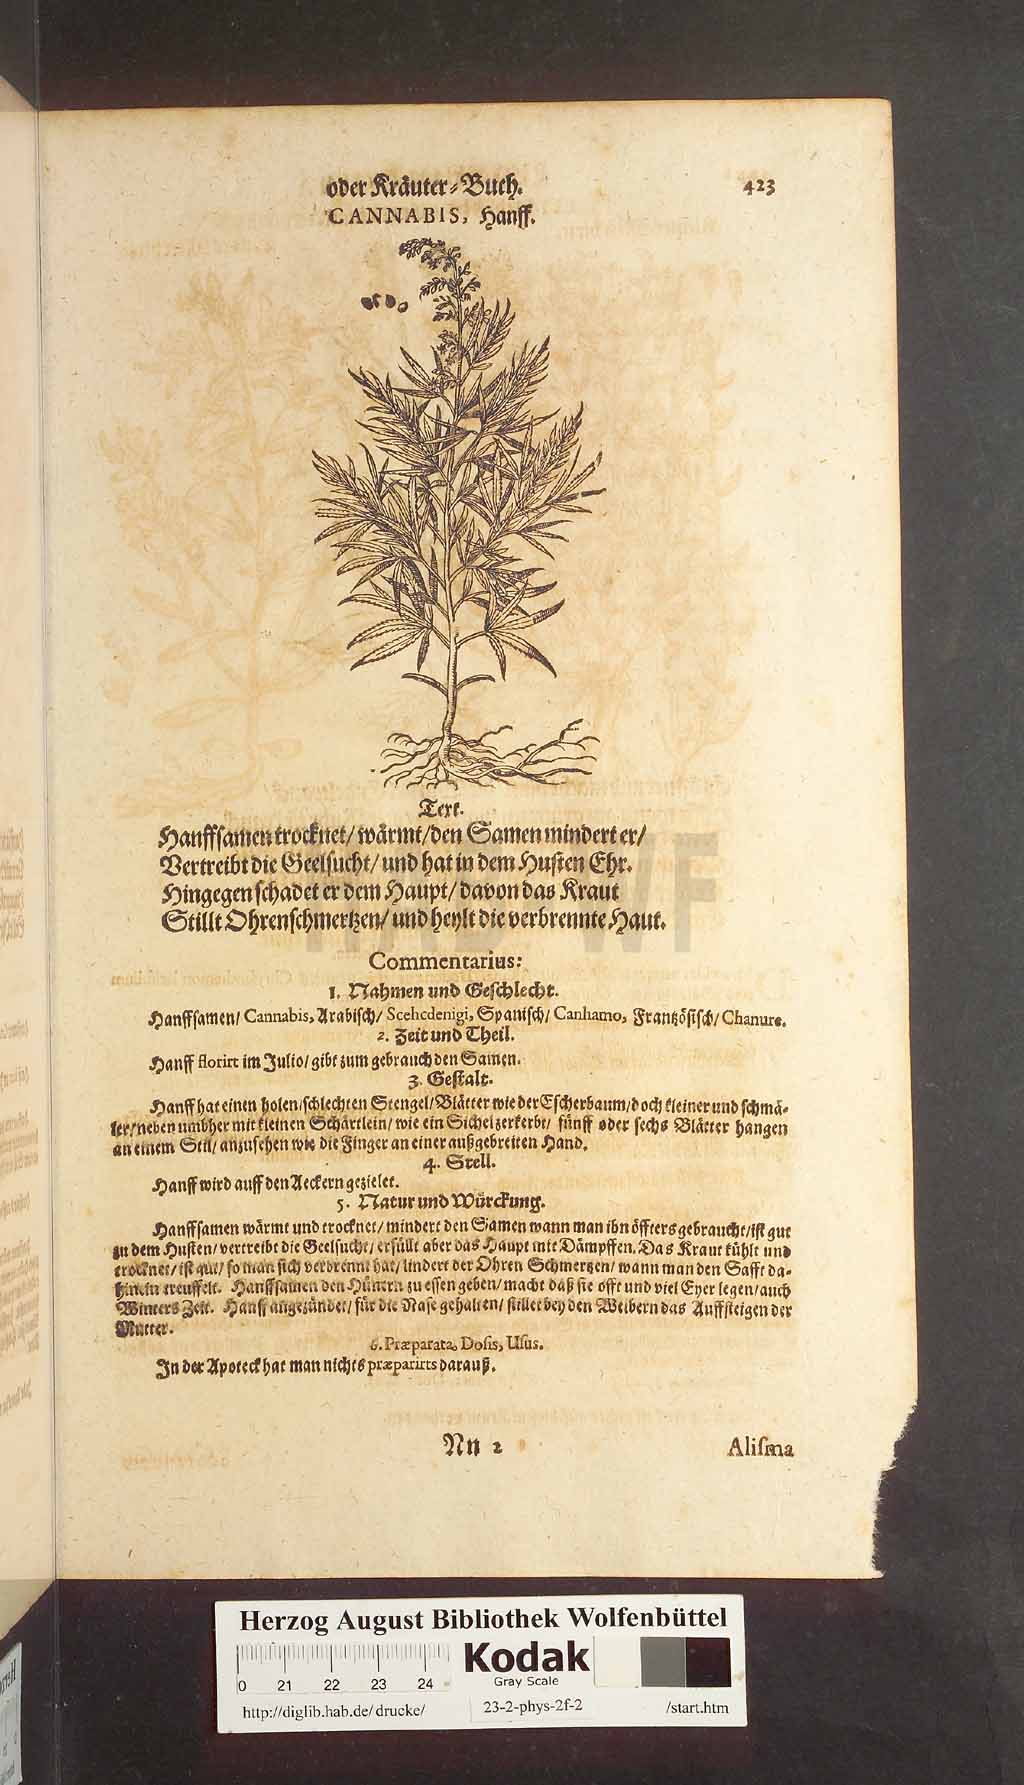 oder Kräuter-Buch. 423
CANNABIS, Hanff.
Text.
Hanffsamen trocknet/ wärmt/ den Samen mindert er/
Vertreibt die Geelsucht/ und hat in dem Husten Ehr.
Hingegen schadet er dem Haupt/ davon das Kraut
Stillt Ohrenschmertzen/ und heylt die verbrennte Haut.
Commentarius:
1. Nahmen und Geschlecht.
Hanffsamen/ Cannabis, Arabisch/ Scehedenigi, Spanisch/ Canhamo, Frantzösisch/ Chanure.
2. Zeit und Theil.
Hanff florirt im Julio/ gibt zum gebrauch den Samen.
3. Gestalt.
Hanff hat einen holen/schlechten Stengel/ Blätter wie der Escherbaum/ doch kleiner und schmä-
ler/ neben umbher mit kleinen Schärtlein/ wie ein Sichel zerkerbt/ fünff oder sechs Blätter hangen
an einem Stil/ anzusehen wie die Finger an einer außgebreiten Hand.
4. Stell.
Hanff wird auff den Aeckern gezielet.
5. Natur und Würckung.
Hanffsamen wärmt und trocknet/ mindert den Samen wann man ihn öffters gebraucht/ ist gut
zu dem Husten/ vertreibt die Geelsucht/ erfüllt aber das Haupt mit Dämpffen. Das Kraut kühlt und
trocknet/ ist gut/ so man sich verbrennt hat/ lindert der Ohren Schmertzen/ wann man den Safft da-
hinein treuffelt. Hanffsamen den Hünern zu essen geben/ macht daß sie offt und viel Eyer legen/ auch
Winters Zeit. Hanff angezündet/ für die Nase gehalten/ stillet bey den Weibern das Auffsteigen der
Mutter.
6. Præparata, Dosis, Usus.
In der Apoteck hat man nichts præparirts darauß.
Nn 2 Alisma
Herzog August Bibliothek Wolfenbüttel
0 21 22 23 24
Kodak
Gray Scale
http://diglib.hab.de/drucke/ 23-2-phys-2f-2 /start.htm